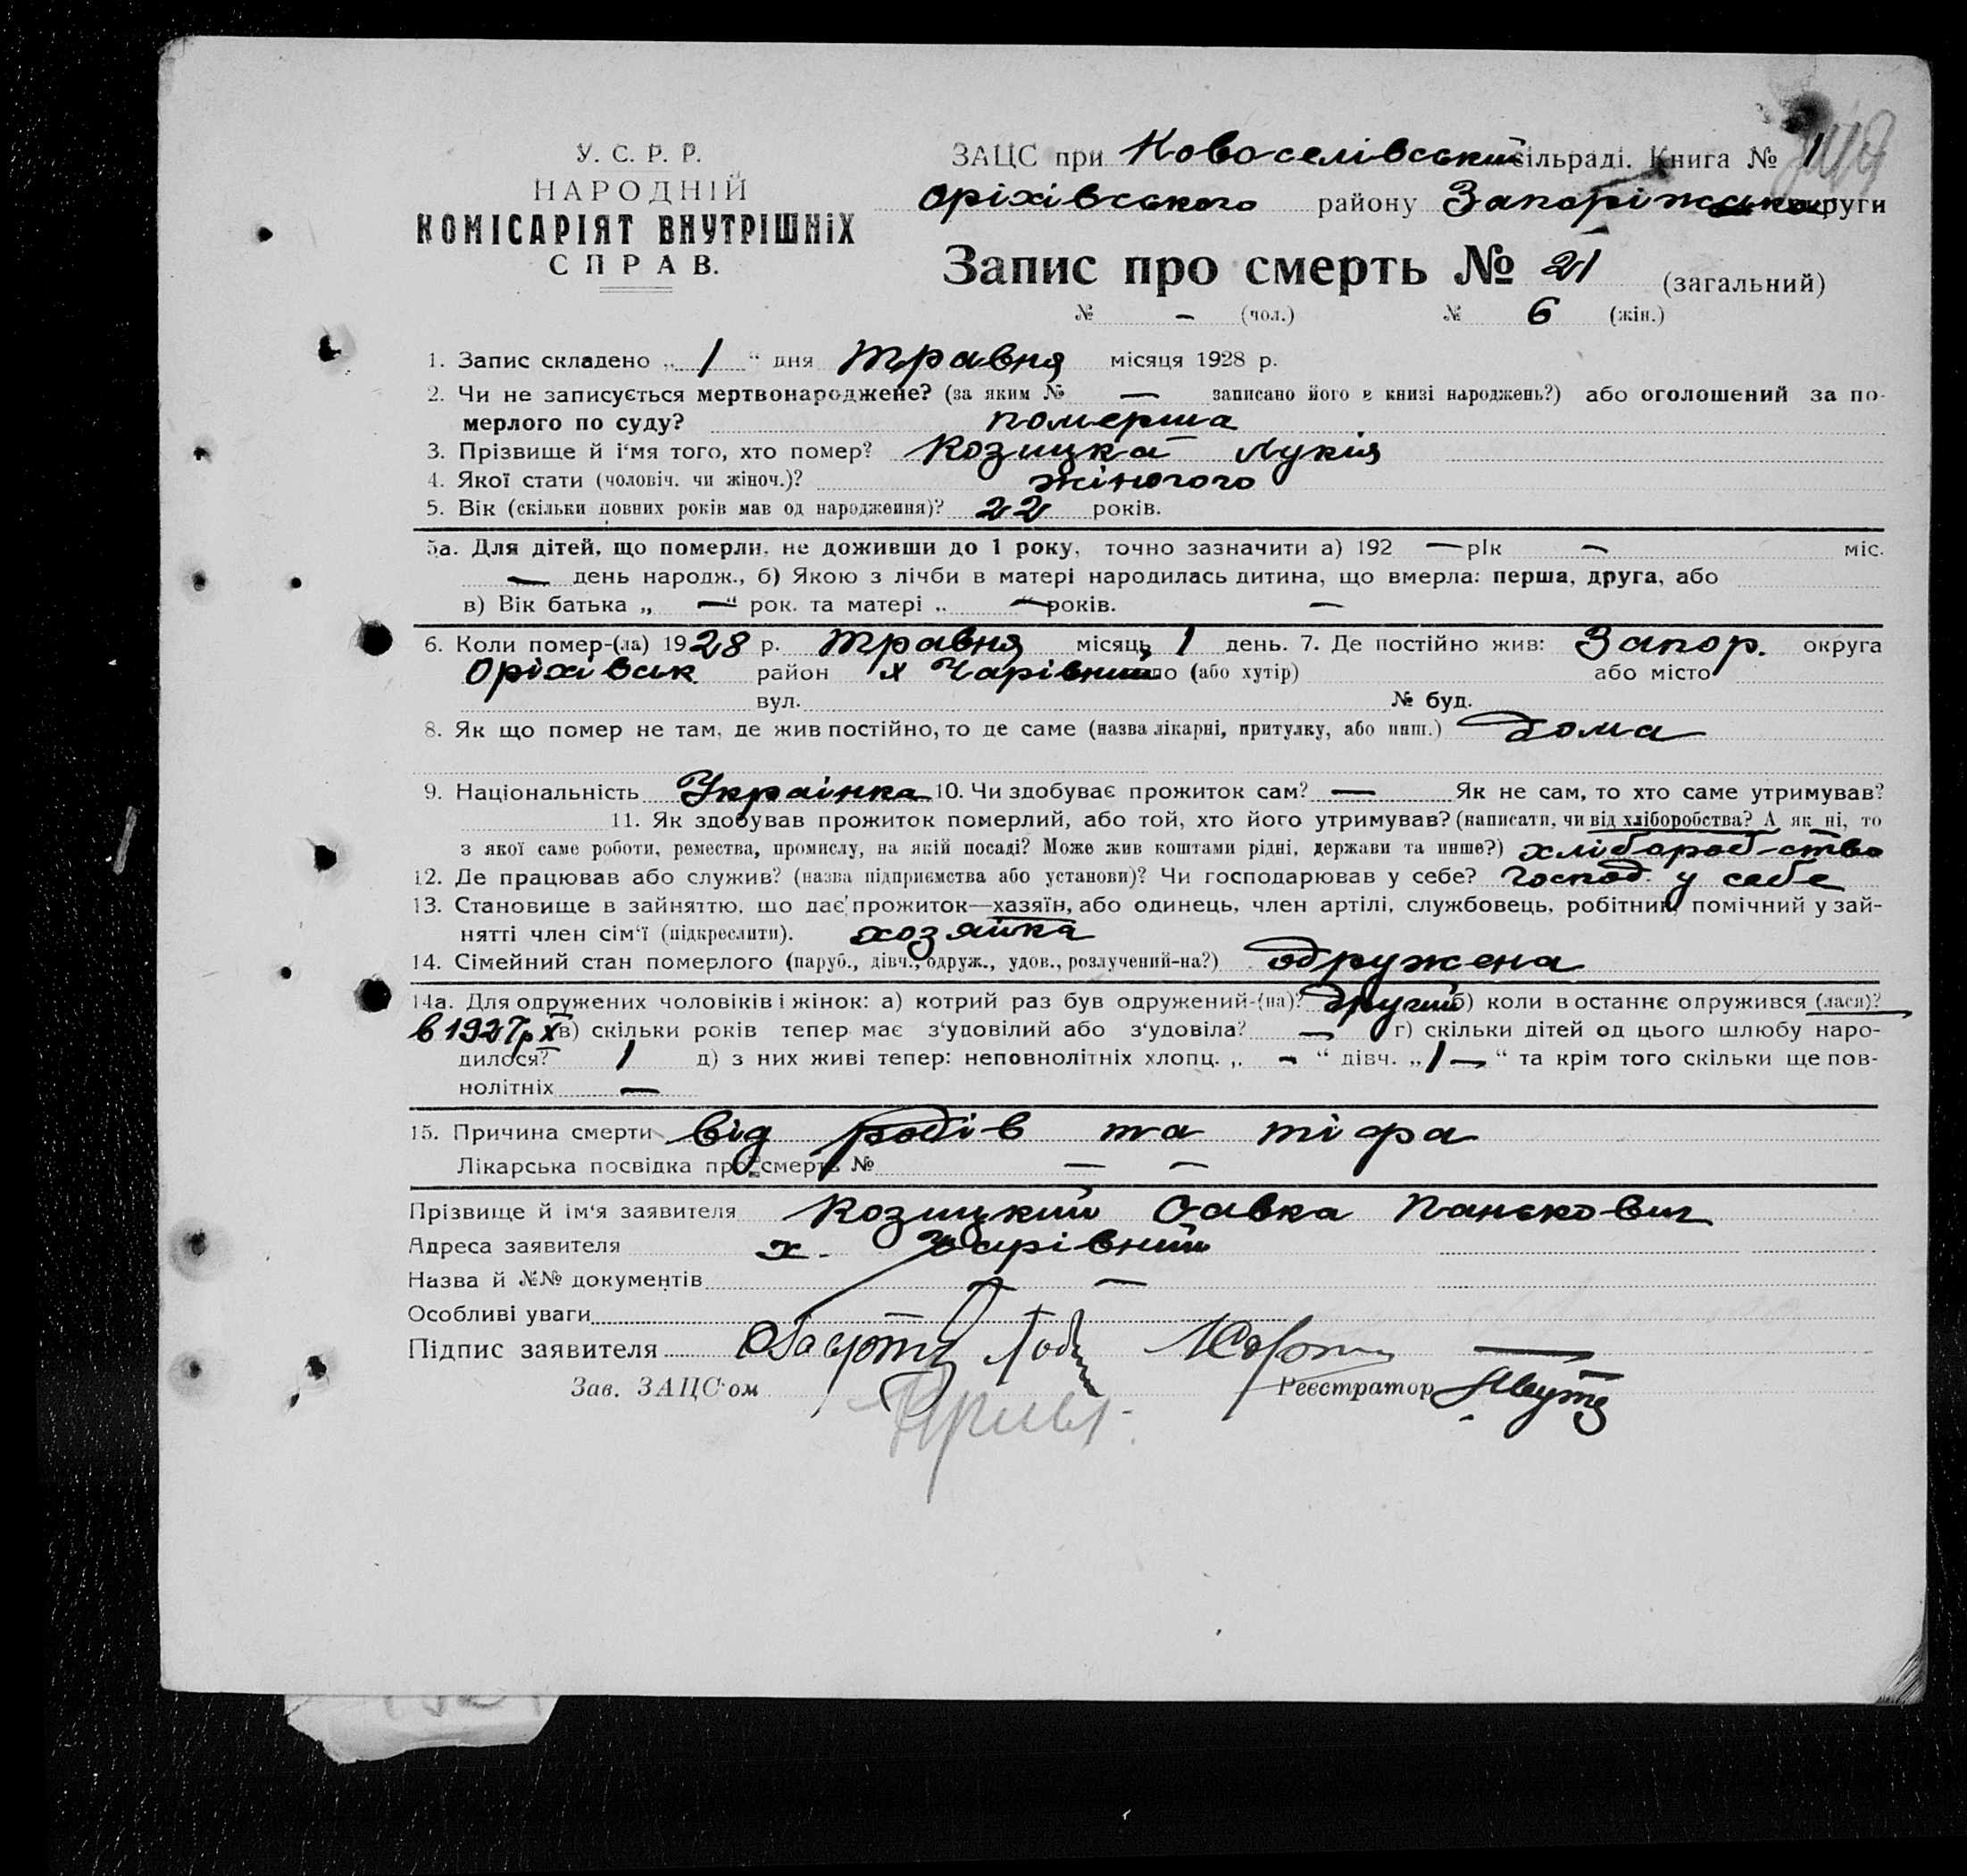 У. С. Р. Р.
НАРОДНІЙ
КОМІСАРІЯТ ВНУТРІШНІХ
СПРАВ.
ЗАЦС при Новоселівський сільраді. Книга № 1
Оріхівського району Запоріжської округи
Запис про смерть № 21 (загальний)
№ — (чол.) № 6 (жін.)
1. Запис складено „ 1 “ дня травня місяця 1928 р.
2. Чи не записується мертвонароджене? (за яким № — записано його в книзі народжень?) або оголошений за по-
мерлого по суду? померша
3. Прізвище й і'мя того, хто помер? Козицка Лукія
4. Якої стати (чоловіч. чи жіноч.)? жіночого
5. Вік (скільки повних років мав од народження)? 22 років.
5а. Для дітей, що померли, не доживши до 1 року, точно зазначити а) 192 — рік — міс.
— день народж., б) Якою з лічби в матері народилась дитина, що вмерла: перша, друга, або
в) Вік батька „ — “ рок. та матері „ — “ років. —
6. Коли помер-(ла) 1928 р. травня місяць 1 день. 7. Де постійно жив: Запор. округа
Оріхівськ район х Чарівний (або хутір) або місто
вул. № буд.
8. Як що помер не там, де жив постійно, то де саме (назва лікарні, притулку, або инш.) дома
9. Національність Українка 10. Чи здобуває прожиток сам? — Як не сам, то хто саме утримував?
11. Як здобував прожиток померлий, або той, хто його утримував? (написати, чи від хліборобства? А як ні, то
з якої саме роботи, ремества, промислу, на якій посаді? Може жив коштами рідні, держави та инше?) хлібороб-ство
12. Де працював або служив? (назва підприємства або установи)? Чи господарював у себе? господ. у себе
13. Становище в зайняттю, що дає прожиток—хазяїн, або одинець, член артілі, службовець, робітник, помічний у зай-
нятті член сім'ї (підкреслити). хозяйка
14. Сімейний стан померлого (паруб., дівч., одруж., удов., розлучений-на?) одружена
14а. Для одружених чоловіків і жінок: а) котрий раз був одружений-(на)? другий б) коли востаннє одружився (лася)?
в 1927р X в) скільки років тепер має з'удовілий або з'удовіла? — г) скільки дітей од цього шлюбу наро-
дилося? 1 д) з них живі тепер: неповнолітніх хлопц. „ — “ дівч. „ 1 — “ та крім того скільки ще пов-
нолітніх —
15. Причина смерти від родів та тіфа
Лікарська посвідка про смерть № — —
Прізвище й ім'я заявителя Козицкий Савка Панькович
Адреса заявителя х. Чарівний
Назва й №№ документів —
Особливі уваги
Підпис заявителя
Зав. ЗАЦС'ом Реєстратор